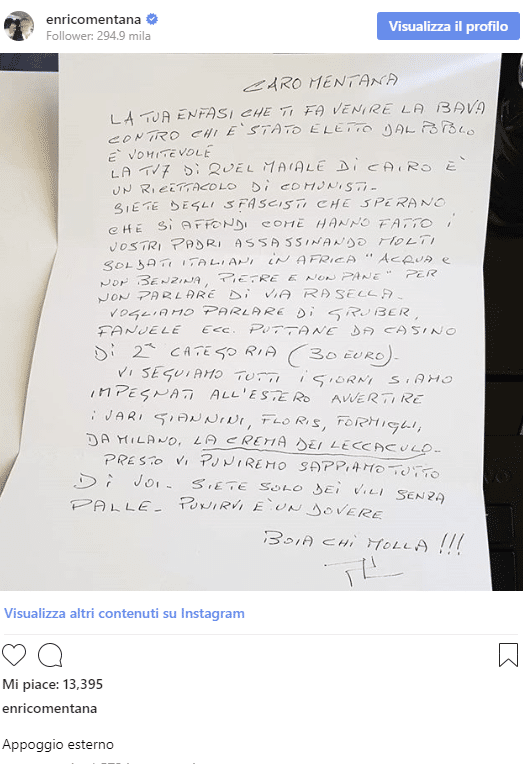 enricomentana
Follower: 294.9 mila
Visualizza il profilo
CARO MENTANA
LA TUA ENFASI CHE TI FA VENIRE LA BAVA
CONTRO CHI E' STATO ELETTO DAL POPOLO
È VOMITEVOLE
LA TV7 DI QUEL MAIALE DI CAIRO È
UN RICETTACOLO DI COMUNISTI-
SIETE DEGLI SFASCISTI CHE SPERANO
CHE SI AFFONDI COME HANNO FATTO I
VOSTRI PADRI ASSASSINANDO MOLTI
SOLDATI ITALIANI IN AFRICA "ACQUA E
NON BENZINA, PIETRE E NON PANE" PER
NON PARLARE DI VIA RASELLA-
VOGLIAMO PARLARE DI GRUBER,
FANUELE ECC. PUTTANE DA CASINO
DI 2ª CATEGORIA (30 EURO)-
VI SEGUIAMO TUTTI I GIORNI SIAMO
IMPEGNATI ALL'ESTERO AVVERTIRE
I VARI GIANNINI, FLORIS, FORMIGLI,
DA MILANO, LA CREMA DEI LECCACULO-
PRESTO VI PUNIREMO SAPPIAMO TUTTO
DI VOI- SIETE SOLO DEI VILI SENZA
PALLE- PUNIRVI È UN DOVERE
BOIA CHI MOLLA !!!
Visualizza altri contenuti su Instagram
Mi piace: 13,395
enricomentana
Appoggio esterno